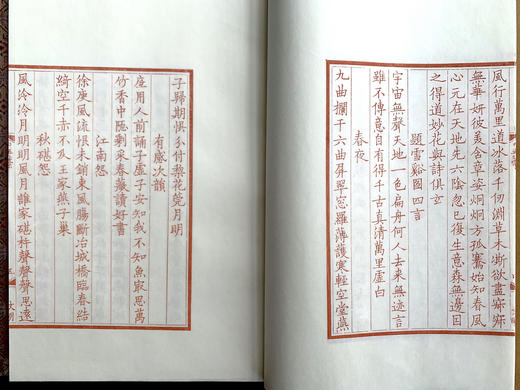 風行萬里道冰落千仞淵草木澌欲盡寂寂
無華妍彼美含章姿炯炯方孤騫始知春風
心元在天地先六陰忽已復生意森無邊因
之得道妙花與詩俱玄
題雪谿圖四言
宇宙無聲天地一色扁舟何人去來無迹言
雖不傳意自有得千古真清萬里虛白
春夜
九曲攔干六曲屏翠窓羅薄護寒輕空堂燕
子歸期悞分付棃花管月明
有感次韻
用人前誦子虛子安知我不知魚寂思萬
竹香中臥剩采春讀好書
江南怨
徐庾風流恨未銷東風腸斷冶城橋臨春結
綺空千赤不及王家燕子巢
秋碪怨
風泠泠月明明風月誰家碪杵聲聲聲思遠